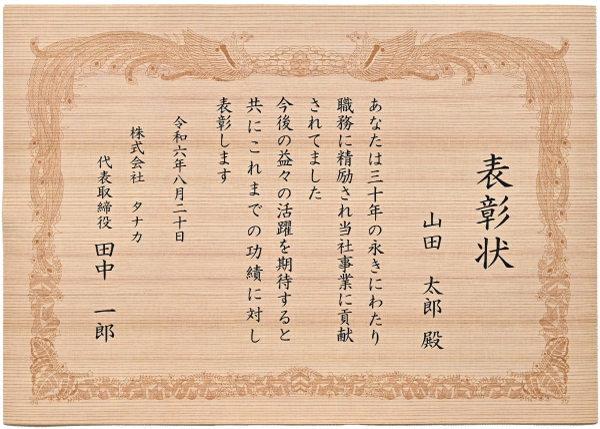 表彰状
山田 太郎 殿
あなたは三十年の永きにわたり
職務に精励され当社事業に貢献
されてました
今後の益々の活躍を期待すると
共にこれまでの功績に対し
表彰します
令和六年八月二十日
株式会社 タナカ
代表取締役 田中 一郎